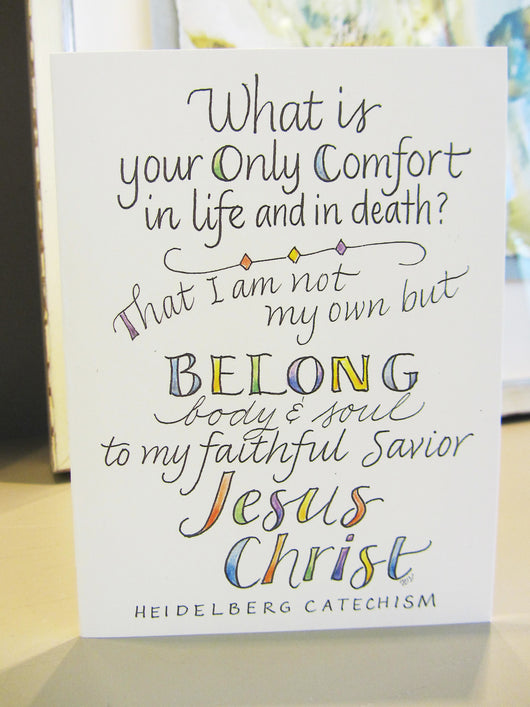 What is
your Only Comfort
in life and in death?
That I am not
my own but
BELONG
body & soul
to my faithful Savior
Jesus
Christ
HEIDELBERG CATECHISM